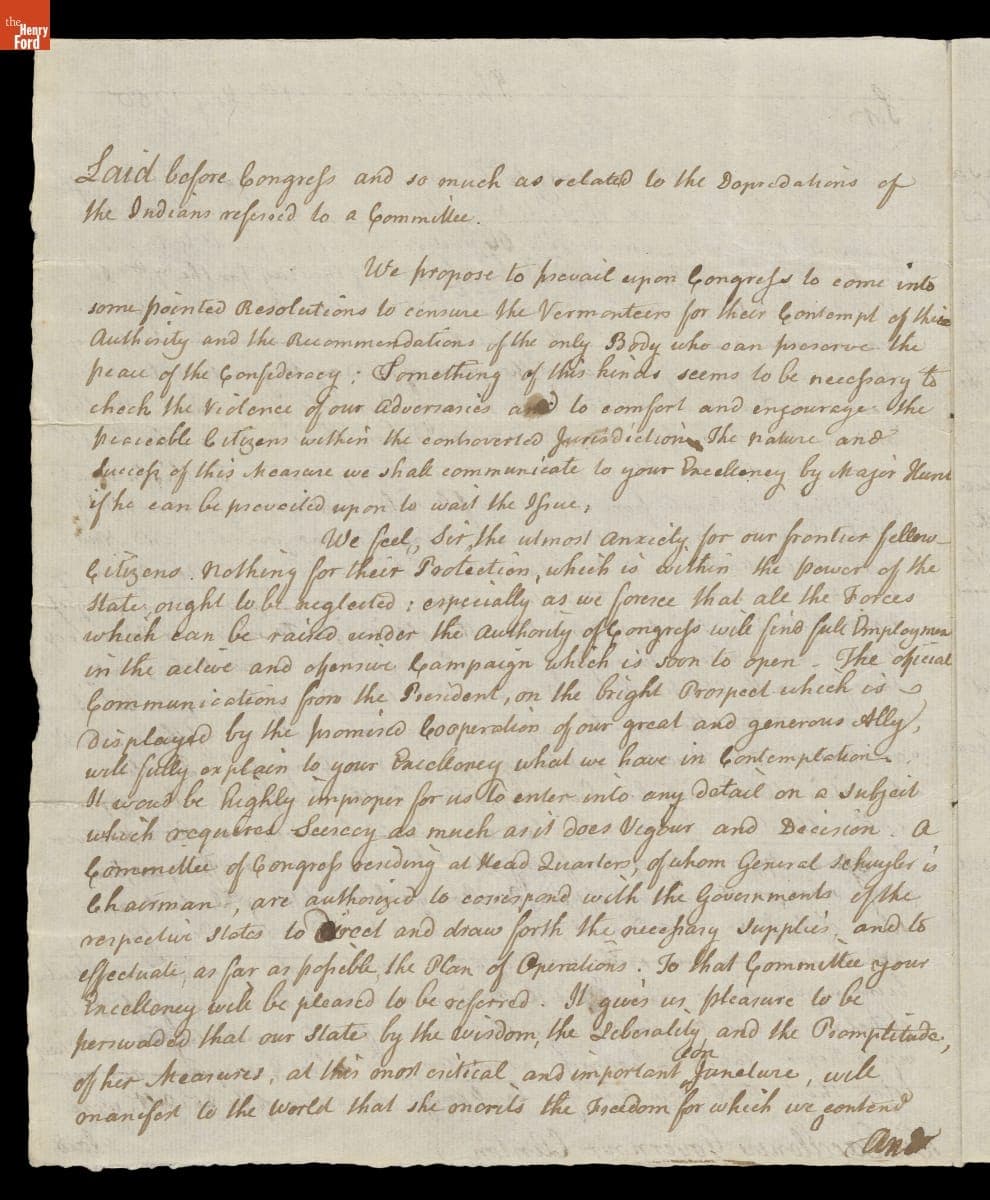 the
Henry
Ford
Laid before Congress and so much as related to the Depredations of
the Indians referred to a Committee.
We propose to prevail upon Congress to come into
some pointed Resolutions to censure the Vermonteers for their Contempt of their
Authority and the Recommendations of the only Body who can preserve the
peace of the Confederacy; Something of this kind seems to be necessary to
check the Violence of our Adversaries and to comfort and encourage the
peaceable Citizens within the controverted Jurisdiction. The nature and
Success of this Measure we shall communicate to your Excellency by Major Hunt
if he can be prevailed upon to wait the Issue,
We feel, Sir, the utmost anxiety for our frontier fellow
Citizens. Nothing for their Protection, which is within the power of the
State, ought to be neglected; especially as we foresee that all the Forces
which can be raised under the Authority of Congress will find full Employmen
in the active and offensive Campaign which is soon to open. The official
Communications from the President, on the bright Prospect which is
displayed by the promised Cooperation of our great and generous Ally,
will fully explain to your Excellency what we have in Contemplation.
It woud be highly improper for us to enter into any detail on a subject
which requires Secrecy as much as it does Vigour and Decision. A
Committee of Congress residing at Head Quarters, of whom General Schuyler is
Chairman, are authorized to correspond with the Governments of the
respective States to direct and draw forth the necessary supplies and to
effectuate, as far as possible, the Plan of Operations. To that Committee your
Excellency will be pleased to be referred. It gives us pleasure to be
perswaded that our State by the wisdom, the Liberality, and the Promptitude,
of her Measures, at this most critical and important Juncture, will
manifest to the World that she merits the Freedom for which we contend
And